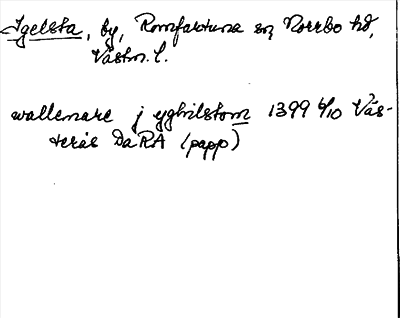 Igelsta, by, Romfartuna sn, Norrbo hd,
Västm. l.
wallemare j yghilstom 1399 6/10 Väs-
terås DaRA (papp)